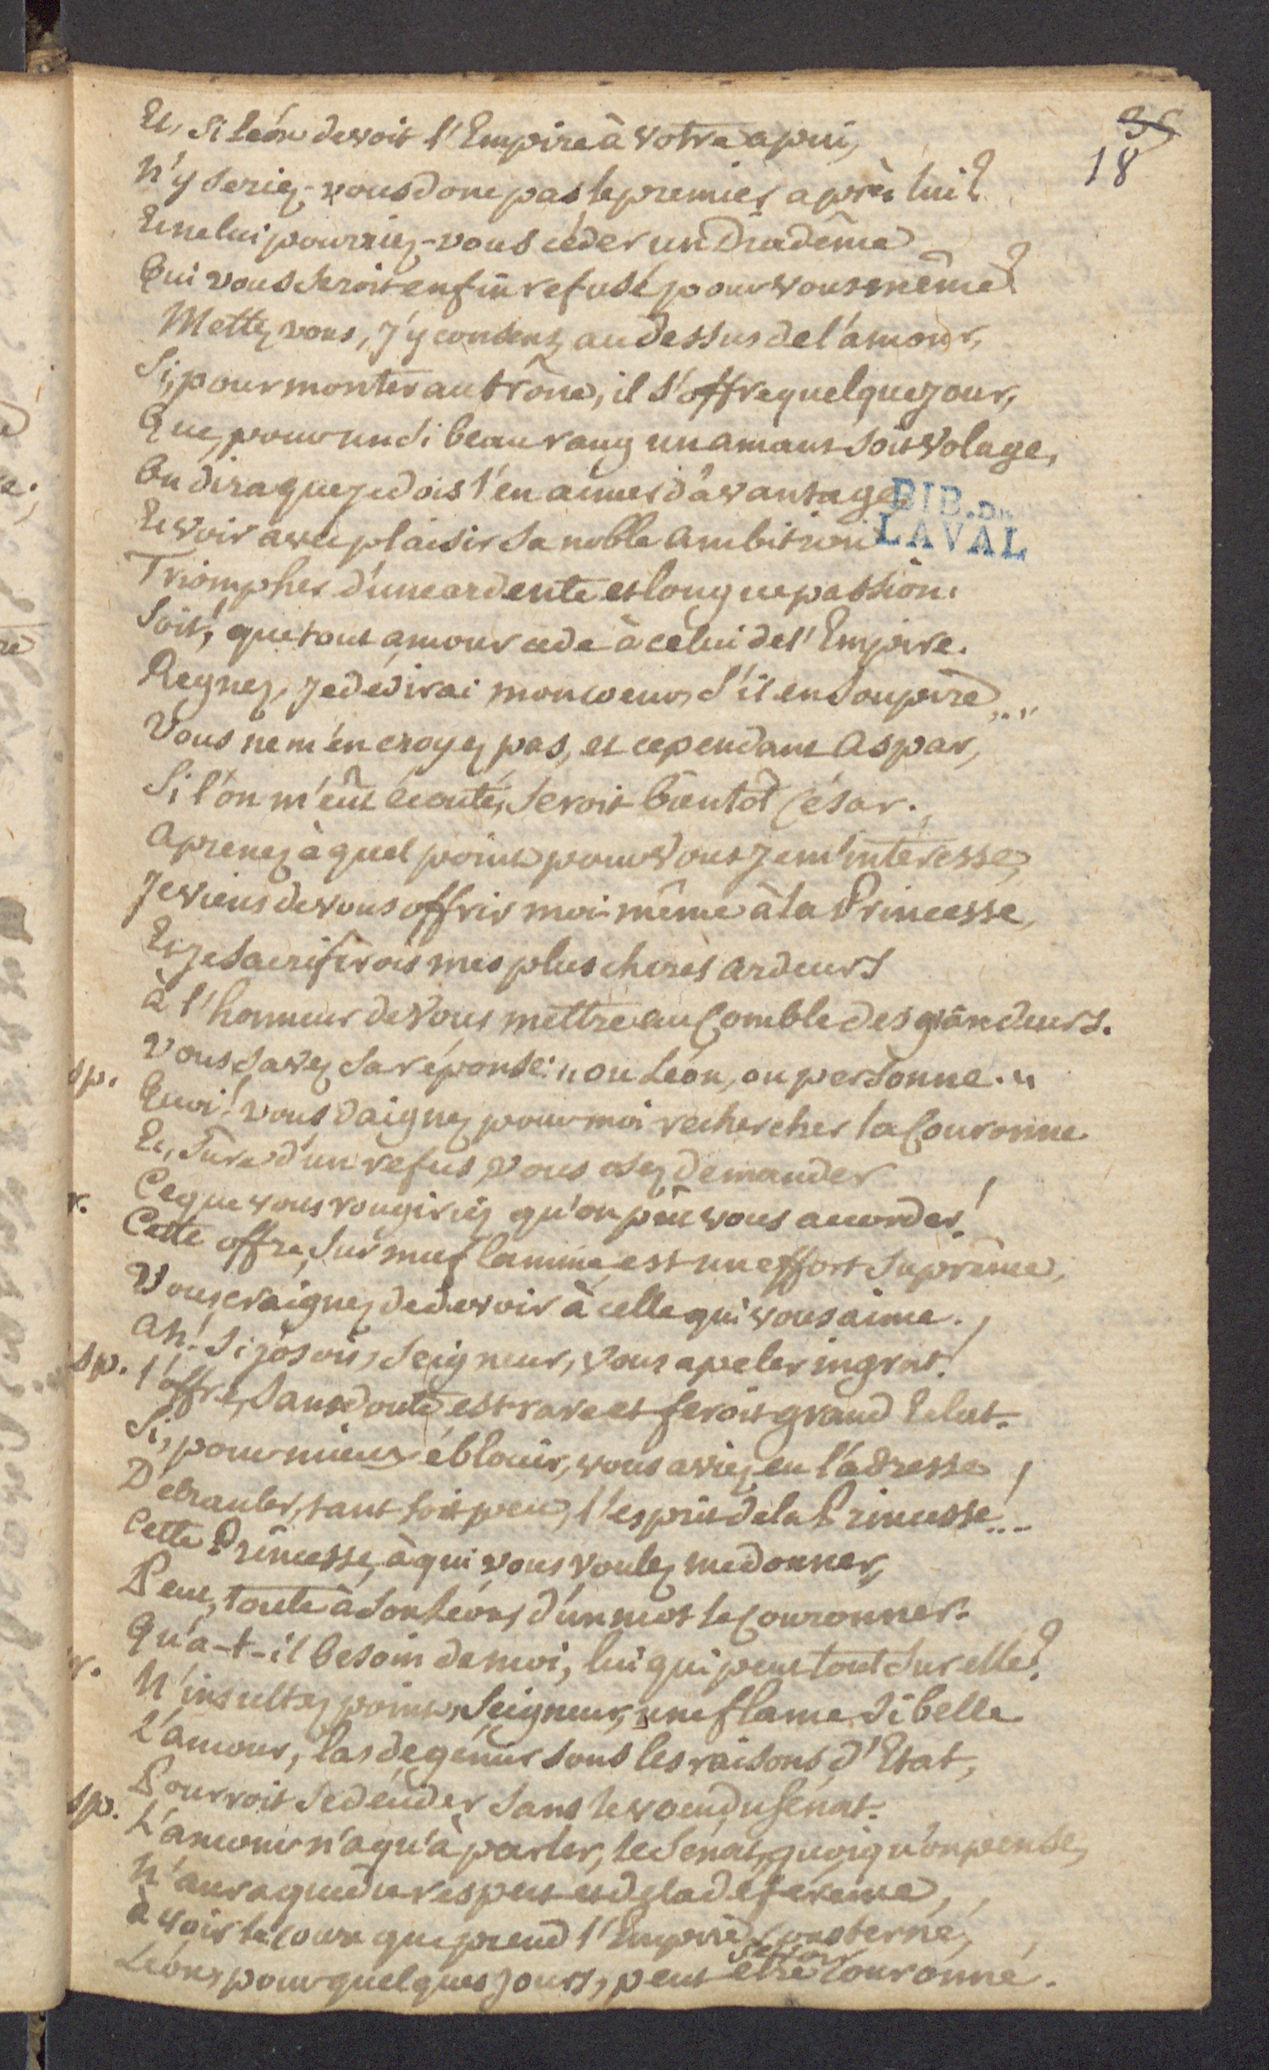 35
18
Et, si Léon devoit l'Empire à votre apui,
N'y seriez-vous donc pas le premier après lui?
Et ne lui pourriez-vous céder un Diadême
Qui vous seroit enfin refusé pour vous même?
Mettez vous, j'y consens, au dessus de l'amour,
Si, pour monter au trône, il s'offre quelque jour,
Que, pour un si beau rang un amant soit volage,
On dira que je dois l'en aimer d'avantage,
Et voir avec plaisir sa noble ambition
BIB. DE
LAVAL
Triompher d'une ardente et longue passion.
Soit! que tout amour cede à celui de l'Empire.
Regnez, je dédirai mon coeur, s'il en soupire....
Vous ne m'en croyez pas, et cependant Aspar,
Si l'on m'eût écouté, seroit bientôt César.
Aprenez à quel point pour vous je m'intéresse,
Je viens de vous offrir moi-même à la Princesse,
Et je sacrifirois mes plus cheres ardeurs
à l'honneur de vous mettre au Comble des grandeurs.
Vous savez sa réponse: "ou Léon, ou personne."
sp. Quoi! vous daignez pour moi rechercher la Couronne
Et, sure d'un refus, vous osez demander
Ce que vous rougiriez qu'on pût vous accorder!
r. Cette offre, sur ma flamme, est un effort suprême,
Vous craignez de devoir à celle qui vous aime.
Ah! si j'osois, Seigneur, vous apeler ingrat!
sp. l'offre, sans doute est rare et feroit grand Eclat.
Si, pour mieux éblouir, vous aviez eu l'adresse
D'ebranler, tant soit peu, l'esprit de la Princesse!...
Cette Princesse, à qui vous voulez me donner,
Peut, toute à son Léon, d'un mot le Couronner.
Qu'a-t-il besoin de moi, lui qui peut tout sur elle?
r. N'insultez point, Seigneur, une flame si belle
L'amour, las de gémir sous les raisons d'Etat,
Pourroit se décider sans le voeu du Sénat.
sp. L'amour n'a qu'à parler, le Senat, quoiqu'on pense,
N'aura que du respect et de la déférence,
à voir le cours que prend l'Empire consterné,
Léon, pour quelques jours, peut être Couronné.